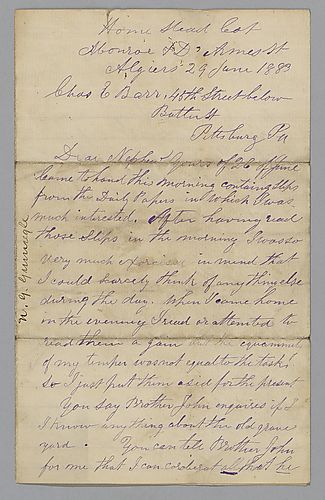 Home Stead Cot
Monroe St & Ames St
Algiers 29 June 1883
Chas E Barr, 48th Street below
Butler St
Pittsburg Pa
Dear Nephew Yours of 26 of June
came to hand this morning containg slips
from the Daily Papers in Which I was
much interested, After having read
those Slips in the morning I was so
very much exorcised in mind that
I could scarcely think of any thing else
during the day. When I came home
in the evening I read or attemted to
read them a gain but the equanimity
of my temper was not equal to the task
so I just put them asid for the present
You say Brother John enquires if I
I know anything about the old grave
yard. You can tell Brother John
for me that I can all that he